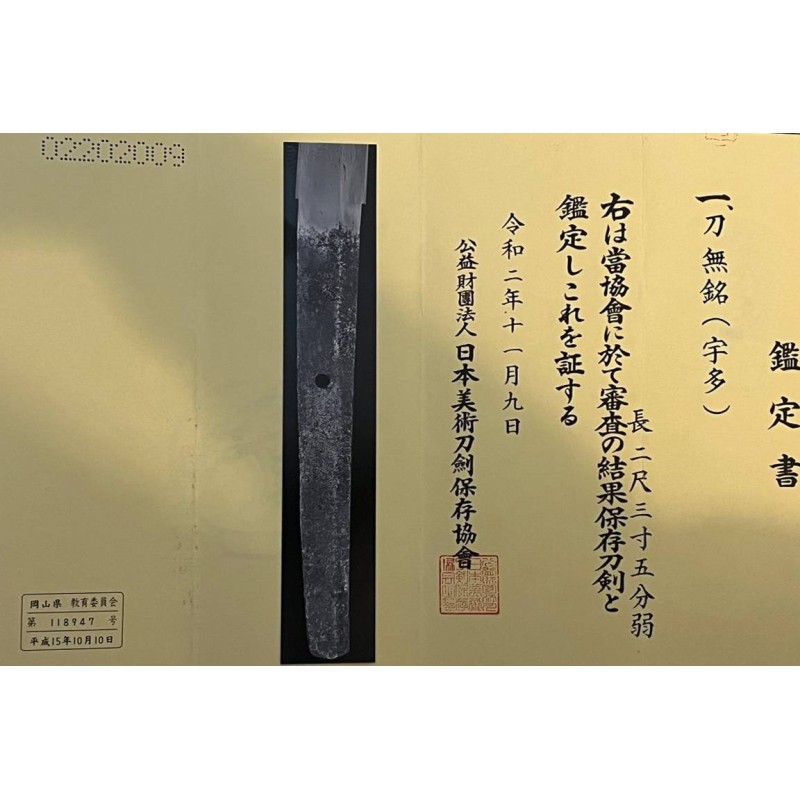 鑑定書
一、刀 無銘（宇多）
長二尺三寸五分弱
右は當協會に於て審査の結果保存刀剣と
鑑定しこれを証する
令和二年十一月九日
公益財團法人日本美術刀劍保存協會
02202009
岡山県 教育委員会
第 118947 号
平成15年10月10日